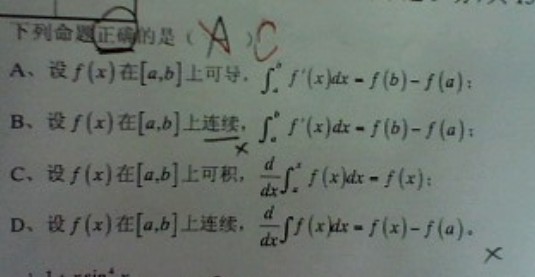 下列命题正确的是（A）C
A、设 f(x) 在[a,b]上可导, ∫ₐᵇ f'(x)dx = f(b) − f(a);
B、设 f(x) 在[a,b]上连续, ∫ₐᵇ f'(x)dx = f(b) − f(a);
×
C、设 f(x) 在[a,b]上可积, d/dx ∫ₐˣ f(x)dx = f(x);
D、设 f(x) 在[a,b]上连续, d/dx ∫ f(x)dx = f(x) − f(a)。
×